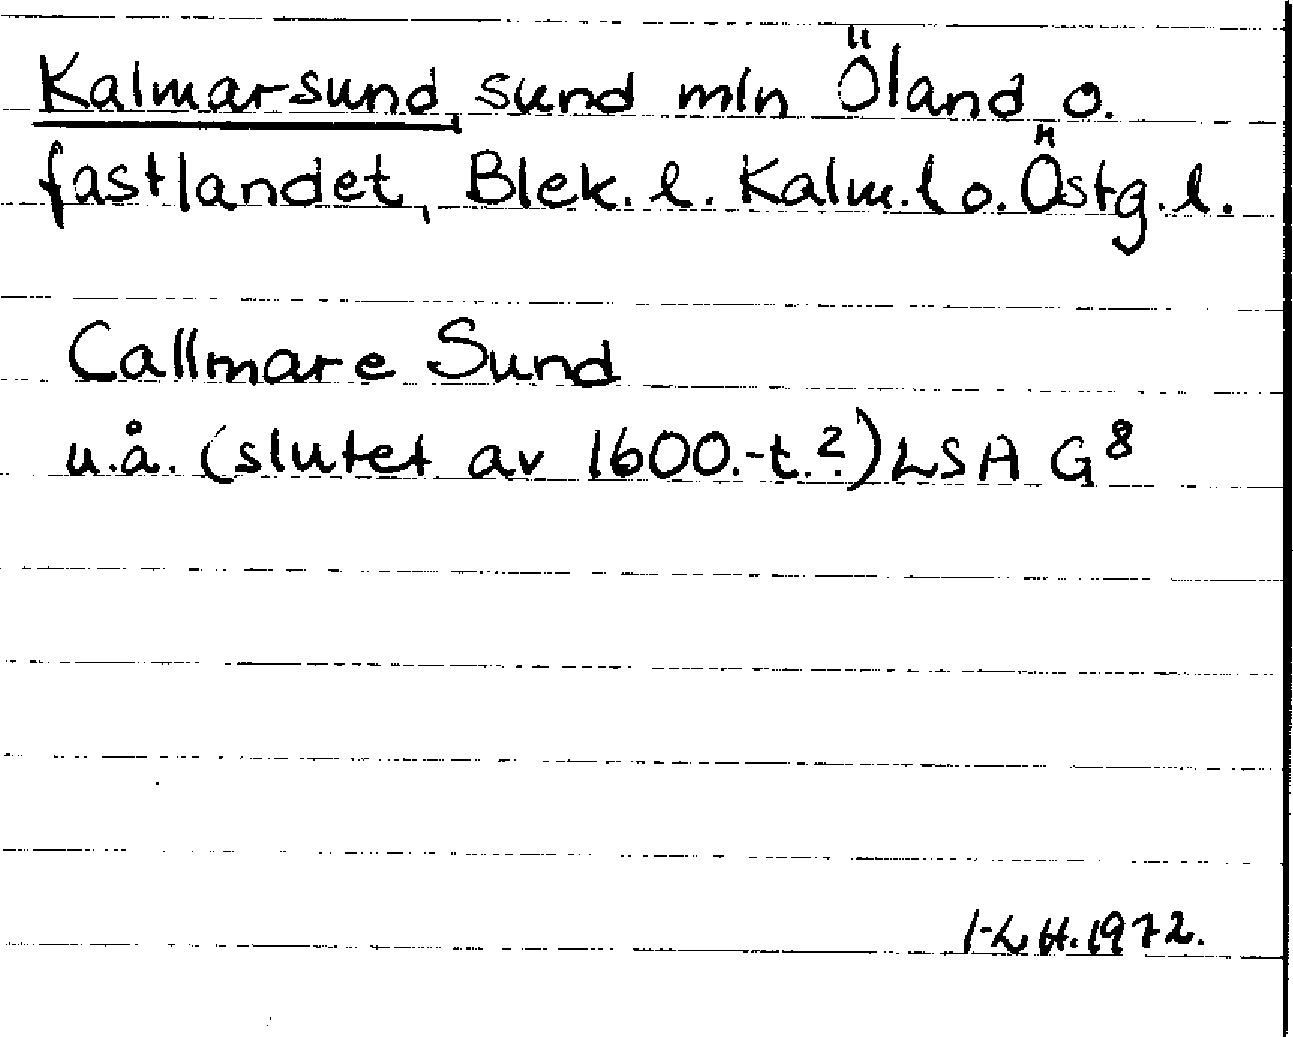 Kalmarsund, sund mln Öland o.
fastlandet, Blek. l. Kalm. l o. Östg. l.
Callmare Sund
u.å. (slutet av 1600.-t.?) LSA G8
I-LH. 1972.